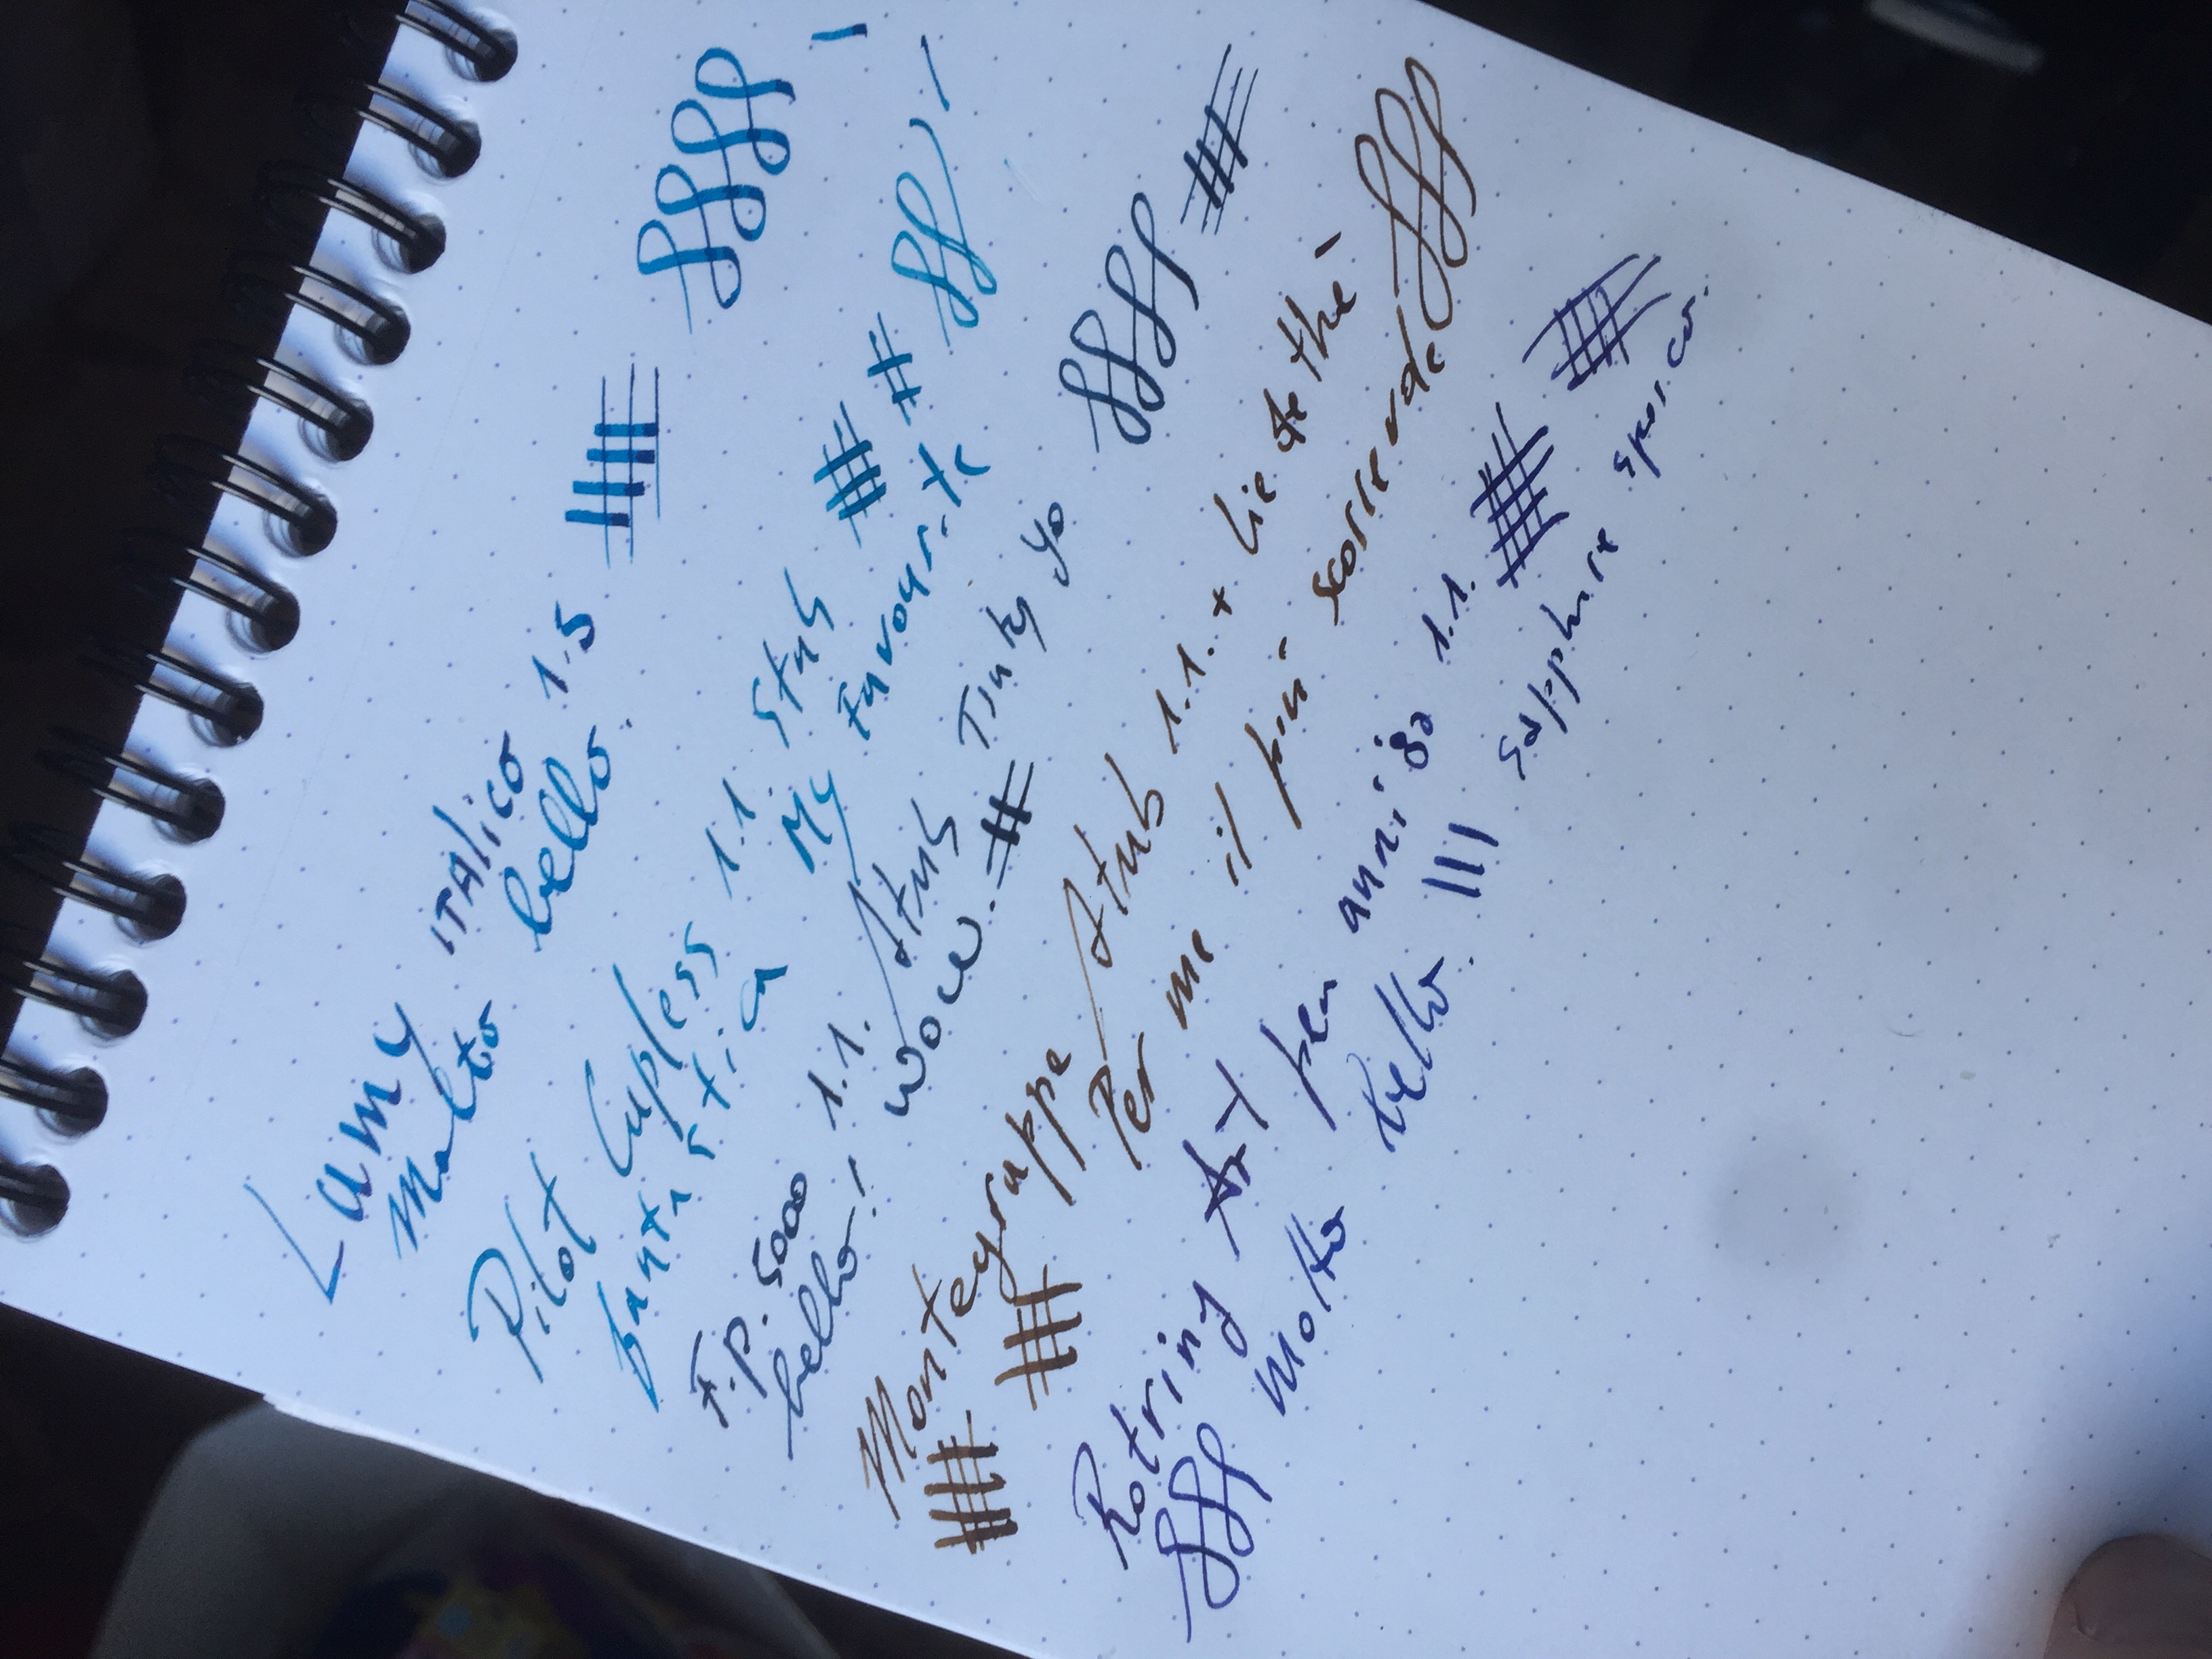 Lamy ITALICO 1.5
Molto bello.
Pilot Capless 1.1 stub
fantastica My favourite
F.P. 5000 1.1. stub Tsuty yo
bello! wow.
Montegrappe stub 1.1. + lie te the
Per me il piu' scorrevole
Rotring Art pen 1.1.
Molto bello. sapphire